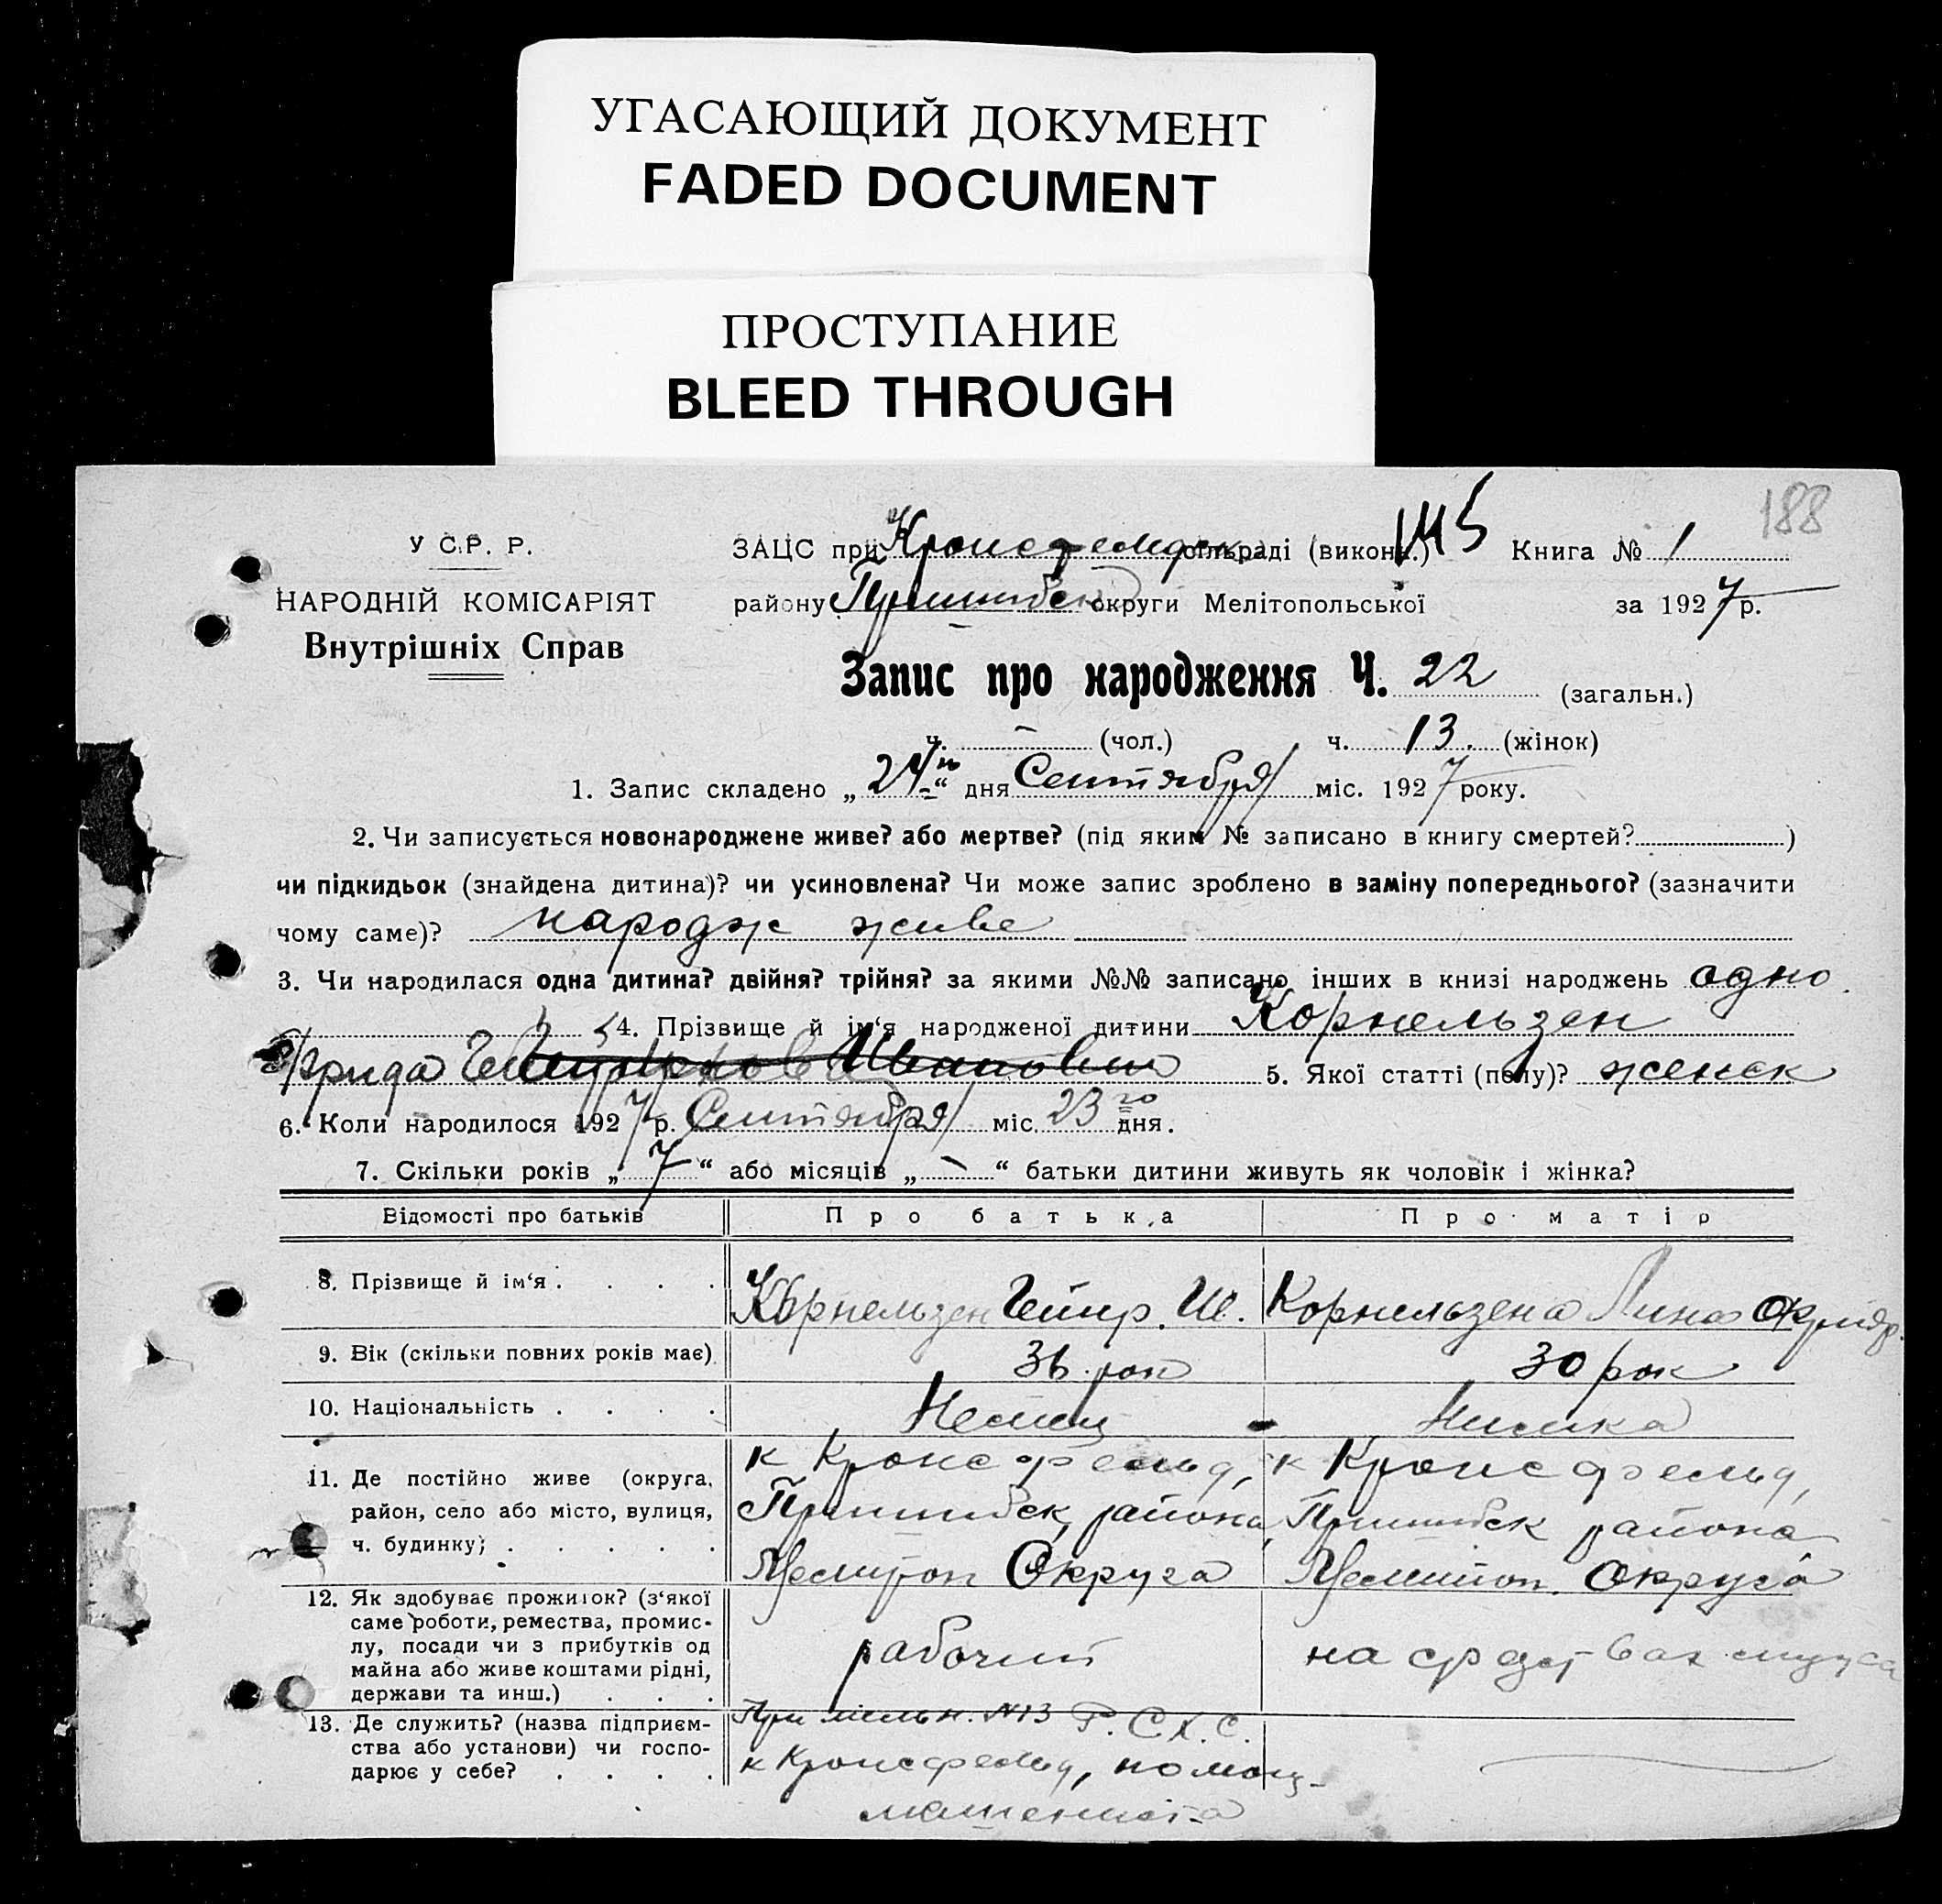 УГАСАЮЩИЙ ДОКУМЕНТ
FADED DOCUMENT
ПРОСТУПАНИЕ
BLEED THROUGH
188
145
У С.Р. Р.
НАРОДНІЙ КОМІСАРІЯТ
Внутрішніх Справ
ЗАЦС при Кронсфельдск сільраді (викон.) Книга № 1
району Пришибск округи Мелітопольської за 1927 р.
Запис про народження Ч. 22 (загальн.)
ч. — (чол.) ч. 13. (жінок)
1. Запис складено „24го“ дня Сентября міс. 1927 року.
2. Чи записується новонароджене живе? або мертве? (під яким № записано в книгу смертей? )
чи підкидьок (знайдена дитина)? чи усиновлена? Чи може запис зроблено в заміну попереднього? (зазначити
чому саме)? народж живе
3. Чи народилася одна дитина? двійня? трійня? за якими №№ записано інших в книзі народжень одно
4. Прізвище й ім‘я народженої дитини Корнельзен
Фрида 5. Якої статті (полу)? женск
6. Коли народилося 1927 р. Сентября міс. 23го дня.
7. Скільки років „7“ або місяців „—“ батьки дитини живуть як чоловік і жінка?
Відомості про батьків Про батька Про матір
8. Прізвище й ім‘я . . . . Корнельзен Гейнр. И. Корнельзена Лина
9. Вік (скільки повних років має) 36 рок 30 рок
10. Національність . . . . Немец Нимка
11. Де постійно живе (округа, район, село або місто, вулиця, ч. будинку; . . . . .
к Кронсфельд, к Кронсфельд,
Пришибск района, Пришибск района
Мелитоп Округа Мелитоп. Округа
12. Як здобуває прожиток? (з‘якої саме роботи, ремества, промислу, посади чи з прибутків од майна або живе коштами рідні, держави та инш.) . . .
рабочий на средствах мужа
13. Де служить? (назва підприємства або установи) чи господарює у себе? . . . .
При мельн. №13 Р. С.Х.С.
к Кронсфельд, помощ-
машениста